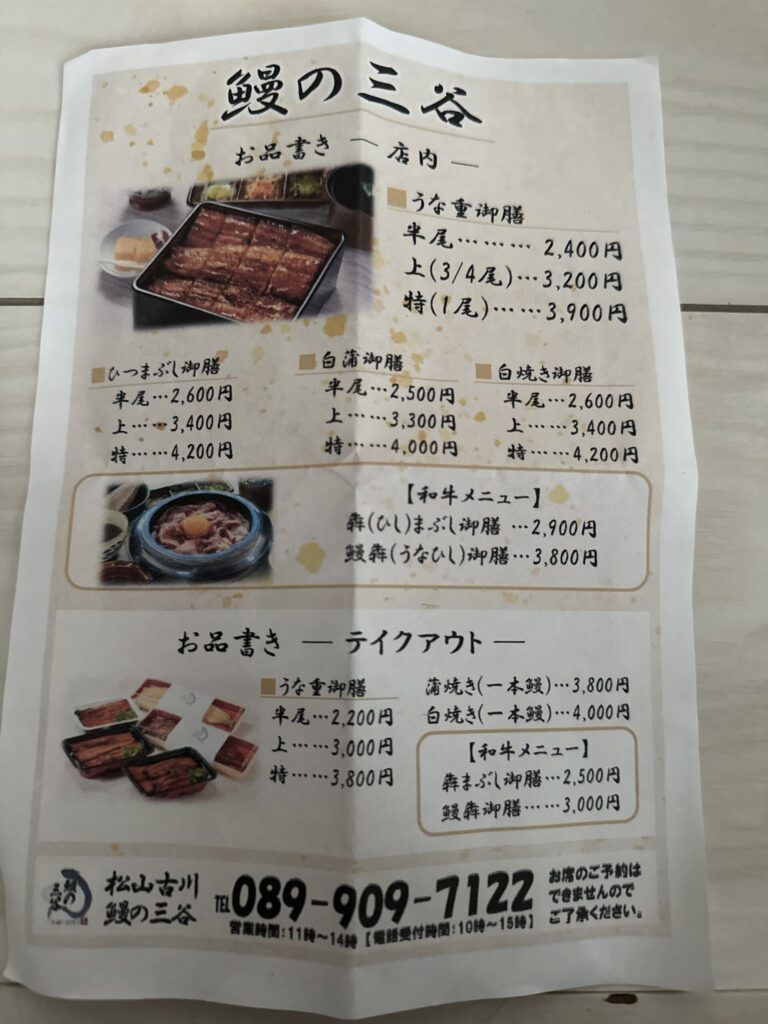 鰻の三谷
お品書き ― 店内 ―
■うな重御膳
半尾……… 2,400円
上(3/4尾)…3,200円
特(1尾)……3,900円
■ひつまぶし御膳
半尾…2,600円
上……3,400円
特……4,200円
■白蒲御膳
半尾…2,500円
上……3,300円
特……4,000円
■白焼き御膳
半尾…2,600円
上……3,400円
特……4,200円
【和牛メニュー】
犇(ひし)まぶし御膳 …2,900円
鰻犇(うなひし)御膳…3,800円
お品書き ― テイクアウト ―
■うな重御膳
半尾…2,200円
上……3,000円
特……3,800円
蒲焼き(一本鰻)…3,800円
白焼き(一本鰻)…4,000円
【和牛メニュー】
犇まぶし御膳…2,500円
鰻犇御膳……3,000円
鰻の三谷
松山古川
鰻の三谷
TEL 089-909-7122
営業時間:11時~14時【電話受付時間:10時~15時】
お席のご予約は
できませんので
ご了承ください。